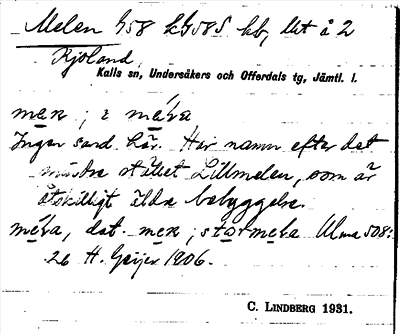 Melen 1/58 kb, det å 2
Rjoland
Kalls sn, Undersåkers och Offerdals tg, Jämtl. l.
men ; i mela
Ingen sand här. Har namn efter det
mindre stället Lillmelen, som är
åtskilligt äldre bebyggelse.
mela, dat. men ; stormela Ulma 508:
26 H. Geijer 1906.
C. LINDBERG 1931.